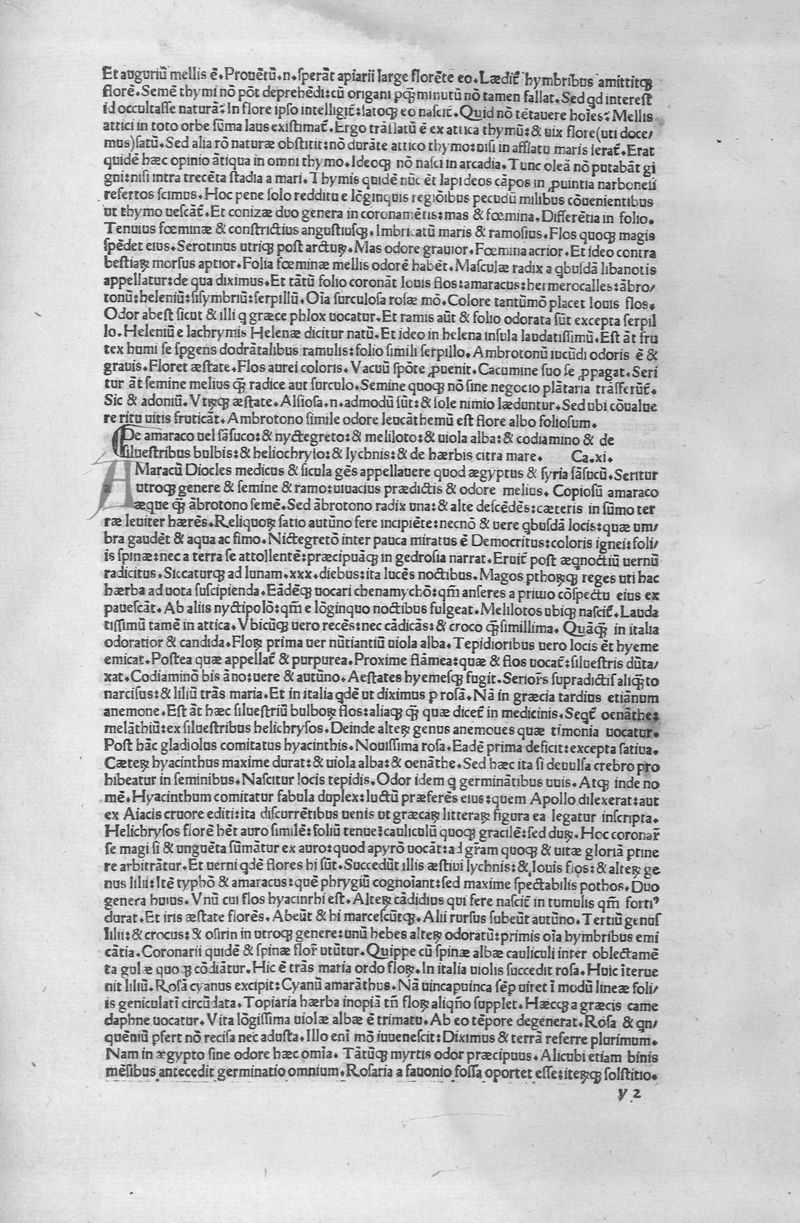 Et auguriū mellis ē. Prouētū.n.sperāt apiarii large florēte eo. Lædiť hymbribus amittitqꝫ
florē. Semē thymi nō pōt deprehēdi: cū origani ꝑqꝫ minutū nō tamen fallat. Sed qd interest
id occultasse naturā: In flore ipso intelligiť: satoqꝫ eo nasciť. Quid nō tētauere hoīes: Mellis
attici in toto orbe sūma laus existimať. Ergo trāslatū ē ex attica thymū: & uix flore (uti doce/
mus) satū. Sed alia rō naturæ obstitit: nō durāte attico thymo: nisi in afflatu maris serať. Erat
quidē hæc opinio ātiqua in omni thymo. Ideoqꝫ nō nasci in arcadia. Tunc oleā nō putabāt gi
gni: nisi intra trecēta stadia a mari. Thymis quidē nūc ēt lapideos cāpos in ꝓuintia narbonesi
refertos scimus. Hoc pene solo redditu e lōginquis regiōibus pecudū milibus cōuenientibus
ut thymo uescāť. Et conizæ duo genera in coronamētis: mas & fœmina. Differētia in folio.
Tenuius fœminæ & constrictius angustiusqꝫ. Imbricatū maris & ramosius. Flos quoqꝫ magis
spēdet eius. Serotinus utriqꝫ post arcturꝫ. Mas odore grauior. Fœmina acrior. Et ideo contra
bestiaꝝ morsus aptior. Folia fœminæ mellis odorē habēt. Masculæ radix a qbusdā libanotis
appellatur: de qua diximus. Et tātū folio coronāt Iouis flos: amaracus: hemerocalles: ābro/
tonū: heleniū: sisymbriū: serpillū. Oīa surculosa rosæ mō. Colore tantūmō placet Iouis flos.
Odor abest sicut & illi q græce phlox uocatur. Et ramis aūt & folio odorata sūt excepta serpil
lo. Heleniū e lachrymis Helenæ dicitur natū. Et ideo in helena insula laudatissimū. Est āt fru
tex humi se spgens dodrātalibus ramulis: folio simili serpillo. Ambrotonū iucūdi odoris ē &
grauis. Floret æstate. Flos aurei coloris. Vacuū spōte ꝓuenit. Cacumine suo se ꝓpagat. Seri
tur āt semine melius qꝫ radice aut surculo. Semine quoqꝫ nō sine negocio plātaria trāsferūť.
Sic & adoniū. Vtrūqꝫ æstate. Alsiosa.n.admodū sūt: & sole nimio læduntur. Sed ubi cōualue
re ritu uitis fruticāt. Ambrotono simile odore leucāthemū est flore albo foliosum.
De amaraco uel sāsuco: & nyctegreto: & meliloto: & uiola alba: & codiamino & de
siluestribus bulbis: & heliochryso: & lychnis: & de hærbis citra mare. Ca.xi.
AMaracū Diocles medicus & sicula gēs appellauere quod ægyptus & syria sāsucū. Seritur
utroqꝫ genere & semine & ramo: uiuacius prædictis & odore melius. Copiosū amaraco
æque qꝫ ābrotono semē. Sed ābrotono radix una: & alte descēdēs: cæteris in sūmo ter
ræ leuiter hærēs. Reliquoꝝ satio autūno fere incipiēte: necnō & uere qbusdā locis: quæ um/
bra gaudēt & aqua ac fimo. Nictegretō inter pauca miratus ē Democritus: coloris ignei: foli/
is spinæ: nec a terra se attollentē: præcipuāqꝫ in gedrosia narrat. Eruiť post æqnoctiū uernū
radicitus. Siccaturqꝫ ad lunam.xxx.diebus: ita lucēs noctibus. Magos pthoꝝqꝫ reges uti hac
hærba ad uota suscipienda. Eādēqꝫ uocari chenamychō: qm̄ anseres a primo cōspectu eius ex
pauescāt. Ab aliis nyctipolō: qm̄ e lōginquo noctibus fulgeat. Melilotos ubiqꝫ nasciť. Lauda
tissimū tamē in attica. Vbicūqꝫ uero recēs: nec cādicās: & croco qꝫsimillima. Quāqꝫ in italia
odoratior & candida. Floꝝ prima uer nūtiantiū uiola alba. Tepidioribus uero locis ēt hyeme
emicat. Postea quæ appellať & purpurea. Proxime flāmea: quæ & flos uocať: siluestris dūta/
xat. Codiaminō bis āno: uere & autūno. Aestates hyemesqꝫ fugit. Serior̄s supradictis aliqꝫto
narcisus: & liliū trās maria. Et in italia qdē ut diximus p rosā. Nā in græcia tardius etiānum
anemone. Est āt hæc siluestriū bulboꝝ flos: aliaqꝫ qꝫ quæ diceť in medicinis. Seqť oenāthe:
melāthiū: ex siluestribus helichrysos. Deinde alteꝝ genus anemoues quæ timonia uocatur.
Post hāc gladiolus comitatus hyacinthis. Nouissima rosa. Eadē prima deficit: excepta satiua.
Cæteꝝ hyacinthus maxime durat: & uiola alba: & oenāthe. Sed hæc ita si deuulsa crebro pro
hibeatur in seminibus. Nascitur locis tepidis. Odor idem q germināti­bus uuis. Atqꝫ inde no
mē. Hyacinthum comitatur fabula duplex: luctū præferēs eius: quem Apollo dilexerat: aut
ex Aiacis cruore editi: ita discurrētibus uenis ut græcaꝝ litteraꝝ figura ea legatur inscripta.
Helichrysos florē hēt auro similē: foliū tenue: cauliculū quoqꝫ gracilē: sed duꝝ. Hoc coronar̄
se magi si & unguēta sūmātur ex auro: quod apyrō uocāt: ad gr̄am quoqꝫ & uitæ gloriā ptine
re arbitrātur. Et uerni qdē flores hi sūt. Succedūt illis æstiui lychnis: & Iouis flos: & alteꝝ ge
nus lilii: Itē typhō & amaracus: quē phrygiū cognoīant: sed maxime spectabilis pothos. Duo
genera huius. Vnū cui flos hyacinthi est. Alteꝝ cādidius qui fere nasciť in tumulis qm̄ forti⁹
durat. Et iris æstate florēs. Abeūt & hi marcescūtqꝫ. Alii rursus subeūt autūno. Tertiū genus
lilii: & crocus: & osirin in utroqꝫ genere: unū hebes alteꝝ odoratū: primis oīa hymbribus emi
cātia. Coronarii quidē & spinæ flor̄ utūtur. Quippe cū spinæ albæ cauliculi inter oblectamē
ta gulæ quoqꝫ cōdiātur. Hic ē trās maria ordo floꝝ. In italia uiolis succedit rosa. Huic īterue
nit liliū. Rosā cyanus excipit: Cyanū amarāthus. Nā uincapuinca sēp uiret ī modū lineæ foli/
is geniculatī circūdata. Topiaria hærba inopiā tn̄ floꝝ aliqn̄o supplet. Hæcqꝫ a græcis came
daphne uocatur. Vita lōgissima uiolæ albæ ē trimatu. Ab eo tēpore degenerat. Rosa & qn/
quēniū pfert nō recisa nec adusta. Illo eni mō iuuenescit: Diximus & terrā referre plurimum.
Nam in ægypto sine odore hæc omīa. Tātūqꝫ myrtis odor præcipuus. Alicubi etiam binis
mēsibus antecedit germinatio omnium. Rosaria a fauonio fossa oportet esse: iteꝝqꝫ solstitio.
y 2